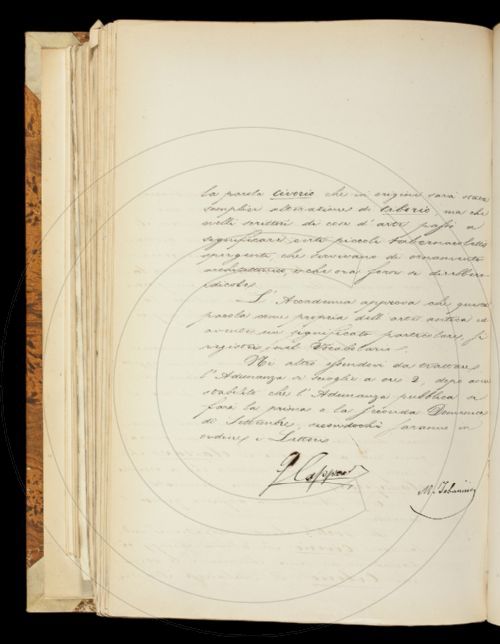 la parola civorio che in origine sarà stata
semplice alterazione di ciborio, ma che
nelli scrittori di cose d'arte passò a
significare certi piccoli tabernacoletti
sporgenti, che servivano di ornamento
architettonico, e che ora forse si direbbero
edicole.
L'Accademia approva che questa
parola come propria dell'arte antica ed
avente un significato particolare si
registri nel Vocabolario.
Nè altro essendovi da trattare
l'Adunanza si scoglie a ore 2, dopo aver
stabilito che l'Adunanza pubblica si
farà la prima o la seconda Domenica
di Settembre, secondochè saranno in
ordine i
G Capponi
M. Tabarrini